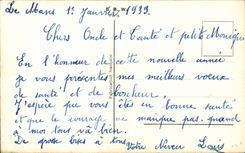 Le Mans 1er Janvier 1933.
Chers Oncle et Tante et petite Monique
En l'honneur de cette nouvelle année
je vous présentes mes meilleurs voeux
de santé et de bonheur.
J'espère que vous êtes en bonne santé
et que le courage ne manque pas. quand
à moi tous và bien.
De grosse bises à tous
Votre Neveu Louis